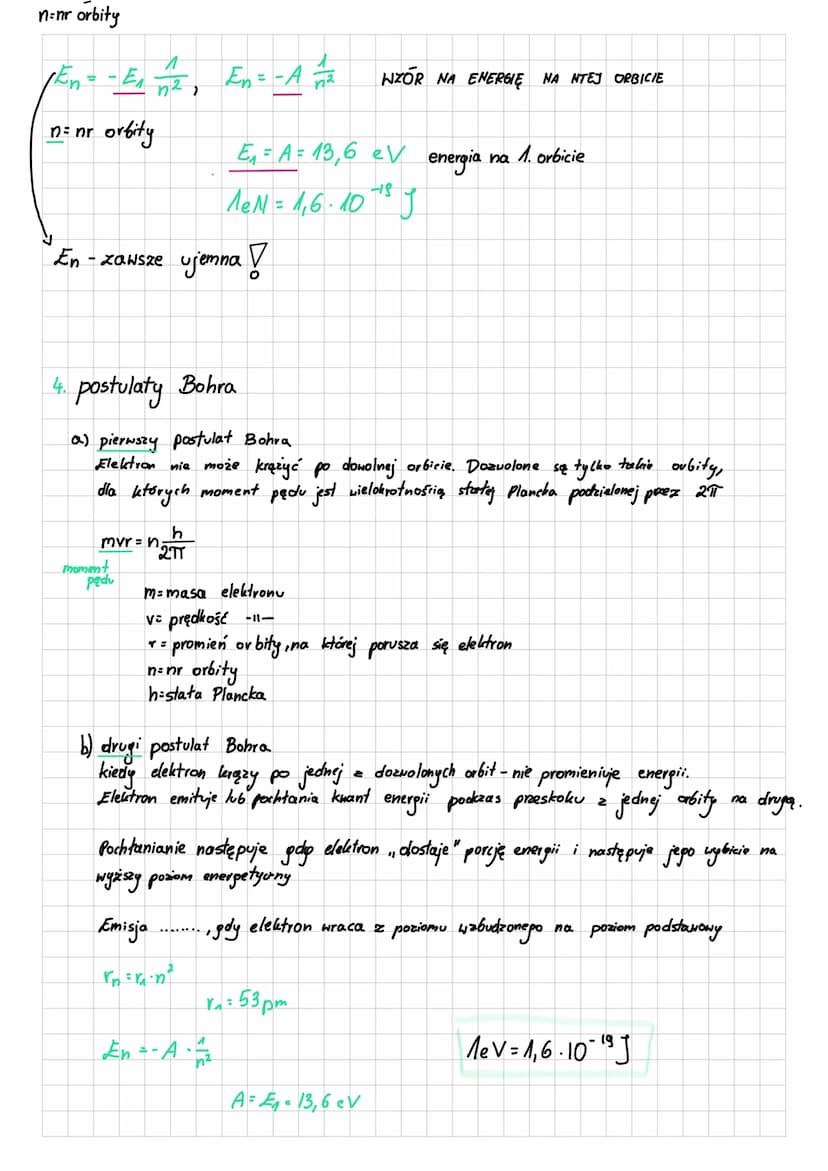 n=nr orbity
En = - E₁ 1/n², En = -A 1/n² WZÓR NA ENERGIĘ NA NTEJ ORBICIE
n= nr orbity
E₁ = A = 13,6 eV energia na 1. orbicie
1eN = 1,6 · 10⁻¹⁹ J
En - zawsze ujemna !
4. postulaty Bohra
a) pierwszy postulat Bohra
Elektron nie może krążyć po dowolnej orbicie. Dozwolone są tylko takie orbity,
dla których moment pędu jest wielokrotnością stałej Plancka podzielonej przez 2π
mvr = n h/2π
moment
pędu
m= masa elektronu
v= prędkość -11-
r = promień orbity, na której porusza się elektron
n=nr orbity
h=stała Plancka
b) drugi postulat Bohra
kiedy elektron krąży po jednej z dozwolonych orbit - nie promieniuje energii.
Elektron emituje lub pochłania kwant energii podczas przeskoku z jednej orbity na drugą.
Pochłanianie następuje gdy elektron „dostaje" porcję energii i następuje jego wybicie na
wyższy poziom energetyczny
Emisja ........, gdy elektron wraca z poziomu wzbudzonego na poziom podstawowy
rn = r₁ · n²
r₁ = 53 pm
En = - A · 1/n²
1eV = 1,6 · 10⁻¹⁹ J
A = E₁ = 13,6 eV